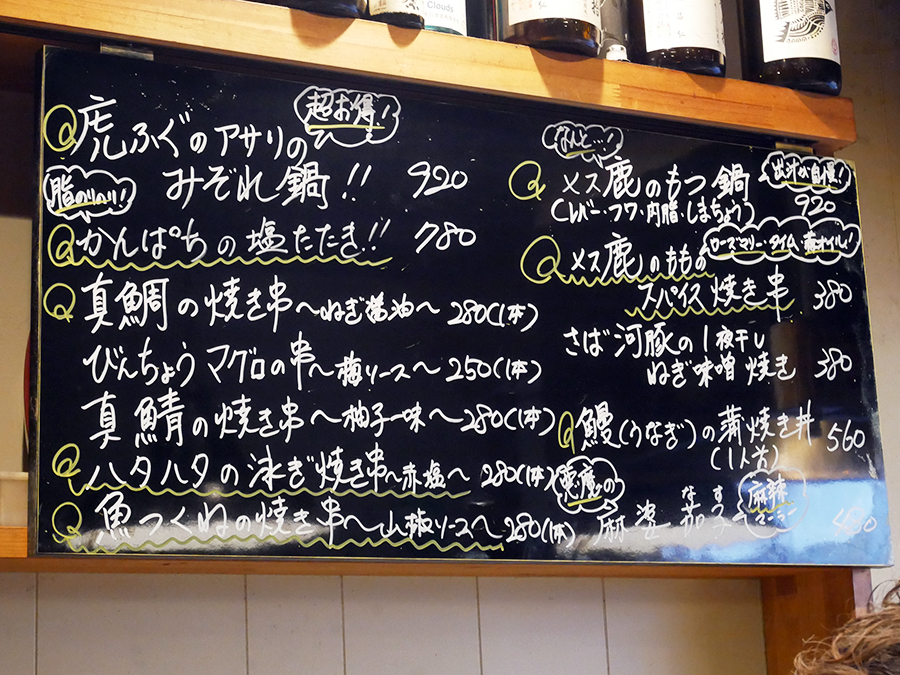 Clouds
超お得!
虎ふぐのアサリの
みぞれ鍋!! 920
脂のりのり!
かんぱちの塩たたき!! 780
真鯛の焼き串〜ねぎ醤油〜280(1本)
びんちょうマグロの串〜梅ソース〜250(1本)
真鯖の焼き串〜柚子一味〜280(1本)
ハタハタの泳ぎ焼き串〜赤塩〜280(1本)
魚つくねの焼き串〜山椒ソース〜280(1本)
なんと…!
メス鹿のもつ鍋
出汁が自慢!
(レバー・フワ・内脂・しまちょう) 920
ローズマリー・タイム・オイル!
メス鹿のももの
スパイス焼き串 380
さば河豚の1夜干し
ねぎ味噌焼き 380
鰻(うなぎ)の蒲焼き丼 560
(1人前)
悪魔の
麻婆茄子
なす
麻辣
マーラー